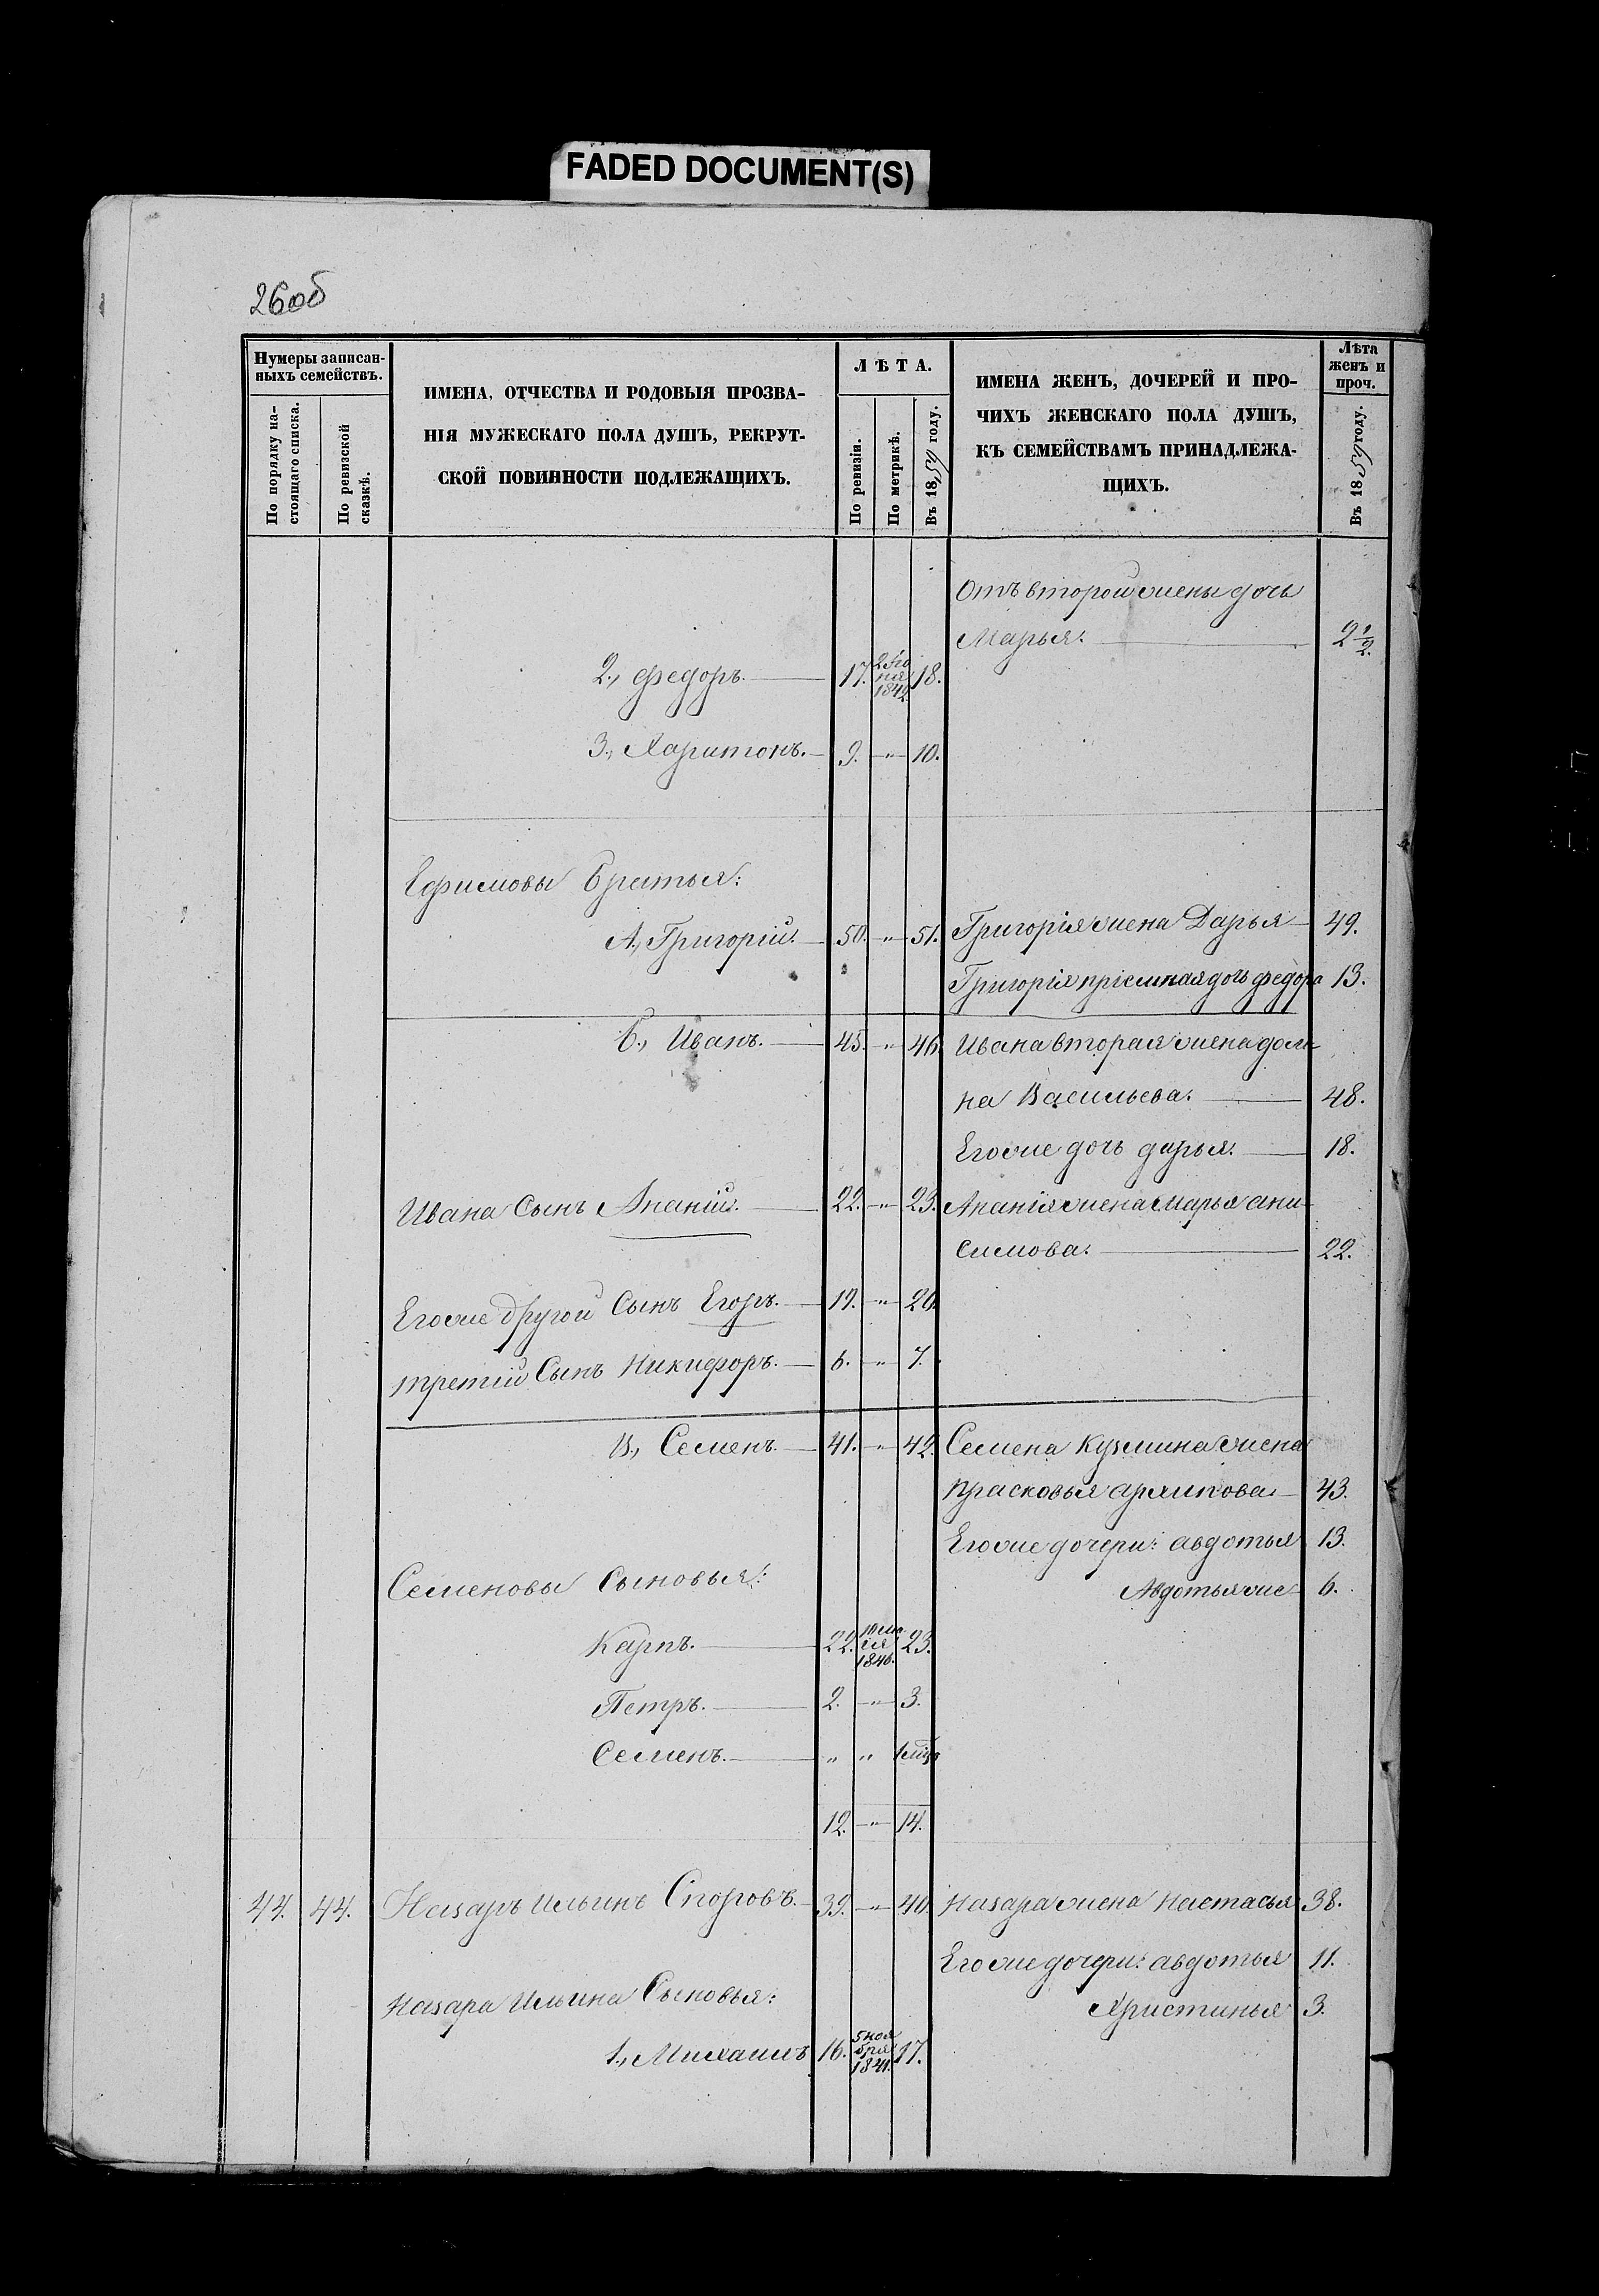 FADED DOCUMENT(S)
26об
Нумеры записан-
ныхъ семействъ.
По порядку на-
стоящаго списка.
По ревизской
сказкѣ.
ИМЕНА, ОТЧЕСТВА И РОДОВЫЯ ПРОЗВА-
НІЯ МУЖЕСКАГО ПОЛА ДУШЪ, РЕКРУТ-
СКОЙ ПОВИННОСТИ ПОДЛЕЖАЩИХЪ.
ЛѢТА.
По ревизіи.
По метрикѣ.
Въ 1859 году.
ИМЕНА ЖЕНЪ, ДОЧЕРЕЙ И ПРО-
ЧИХЪ ЖЕНСКАГО ПОЛА ДУШЪ,
КЪ СЕМЕЙСТВАМЪ ПРИНАДЛЕЖА-
ЩИХЪ.
Лѣта
женъ и
проч.
Въ 1859 году.
Отъ второй жены дочь
Марья. 2 1/2.
2., Федоръ. 17. 18.
3., Харитонъ. 9. -"- 10.
Ефимовы Братья:
А., Григорій. 50. -"- 51. Григорія жена Дарья 49.
Григорія пріемная дочь Федора 13.
Б., Иванъ. 45. -"- 46. Ивана вторая жена дом-
на Васильева. 48.
Его же дочь дарья. 18.
Ивана Сынъ Ананій. 22. -"- 23. Ананія жена Марья ани-
симова. 22.
Его же другой Сынъ Егоръ. 19. -"- 20.
третій Сынъ Никифоръ. 6. -"- 7.
В., Семенъ. 41. -"- 42. Семена Кузмина жена
Прасковья архипова 43.
Его же дочери: авдотья 13.
Семеновы Сыновья:
Авдотья же 6.
Карпъ. 22. 23.
Петръ. 2. -"- 3.
Семенъ. " "
12. -"- 14.
44. 44. Назаръ Ильинъ Споровъ. 39. -"- 40. Назара жена Настасья 38.
Его же дочери: авдотья 11.
Назара Ильина Сыновья:
Христинья 3.
1., Михаилъ 16. 5 ноя
бря
1841. 17.